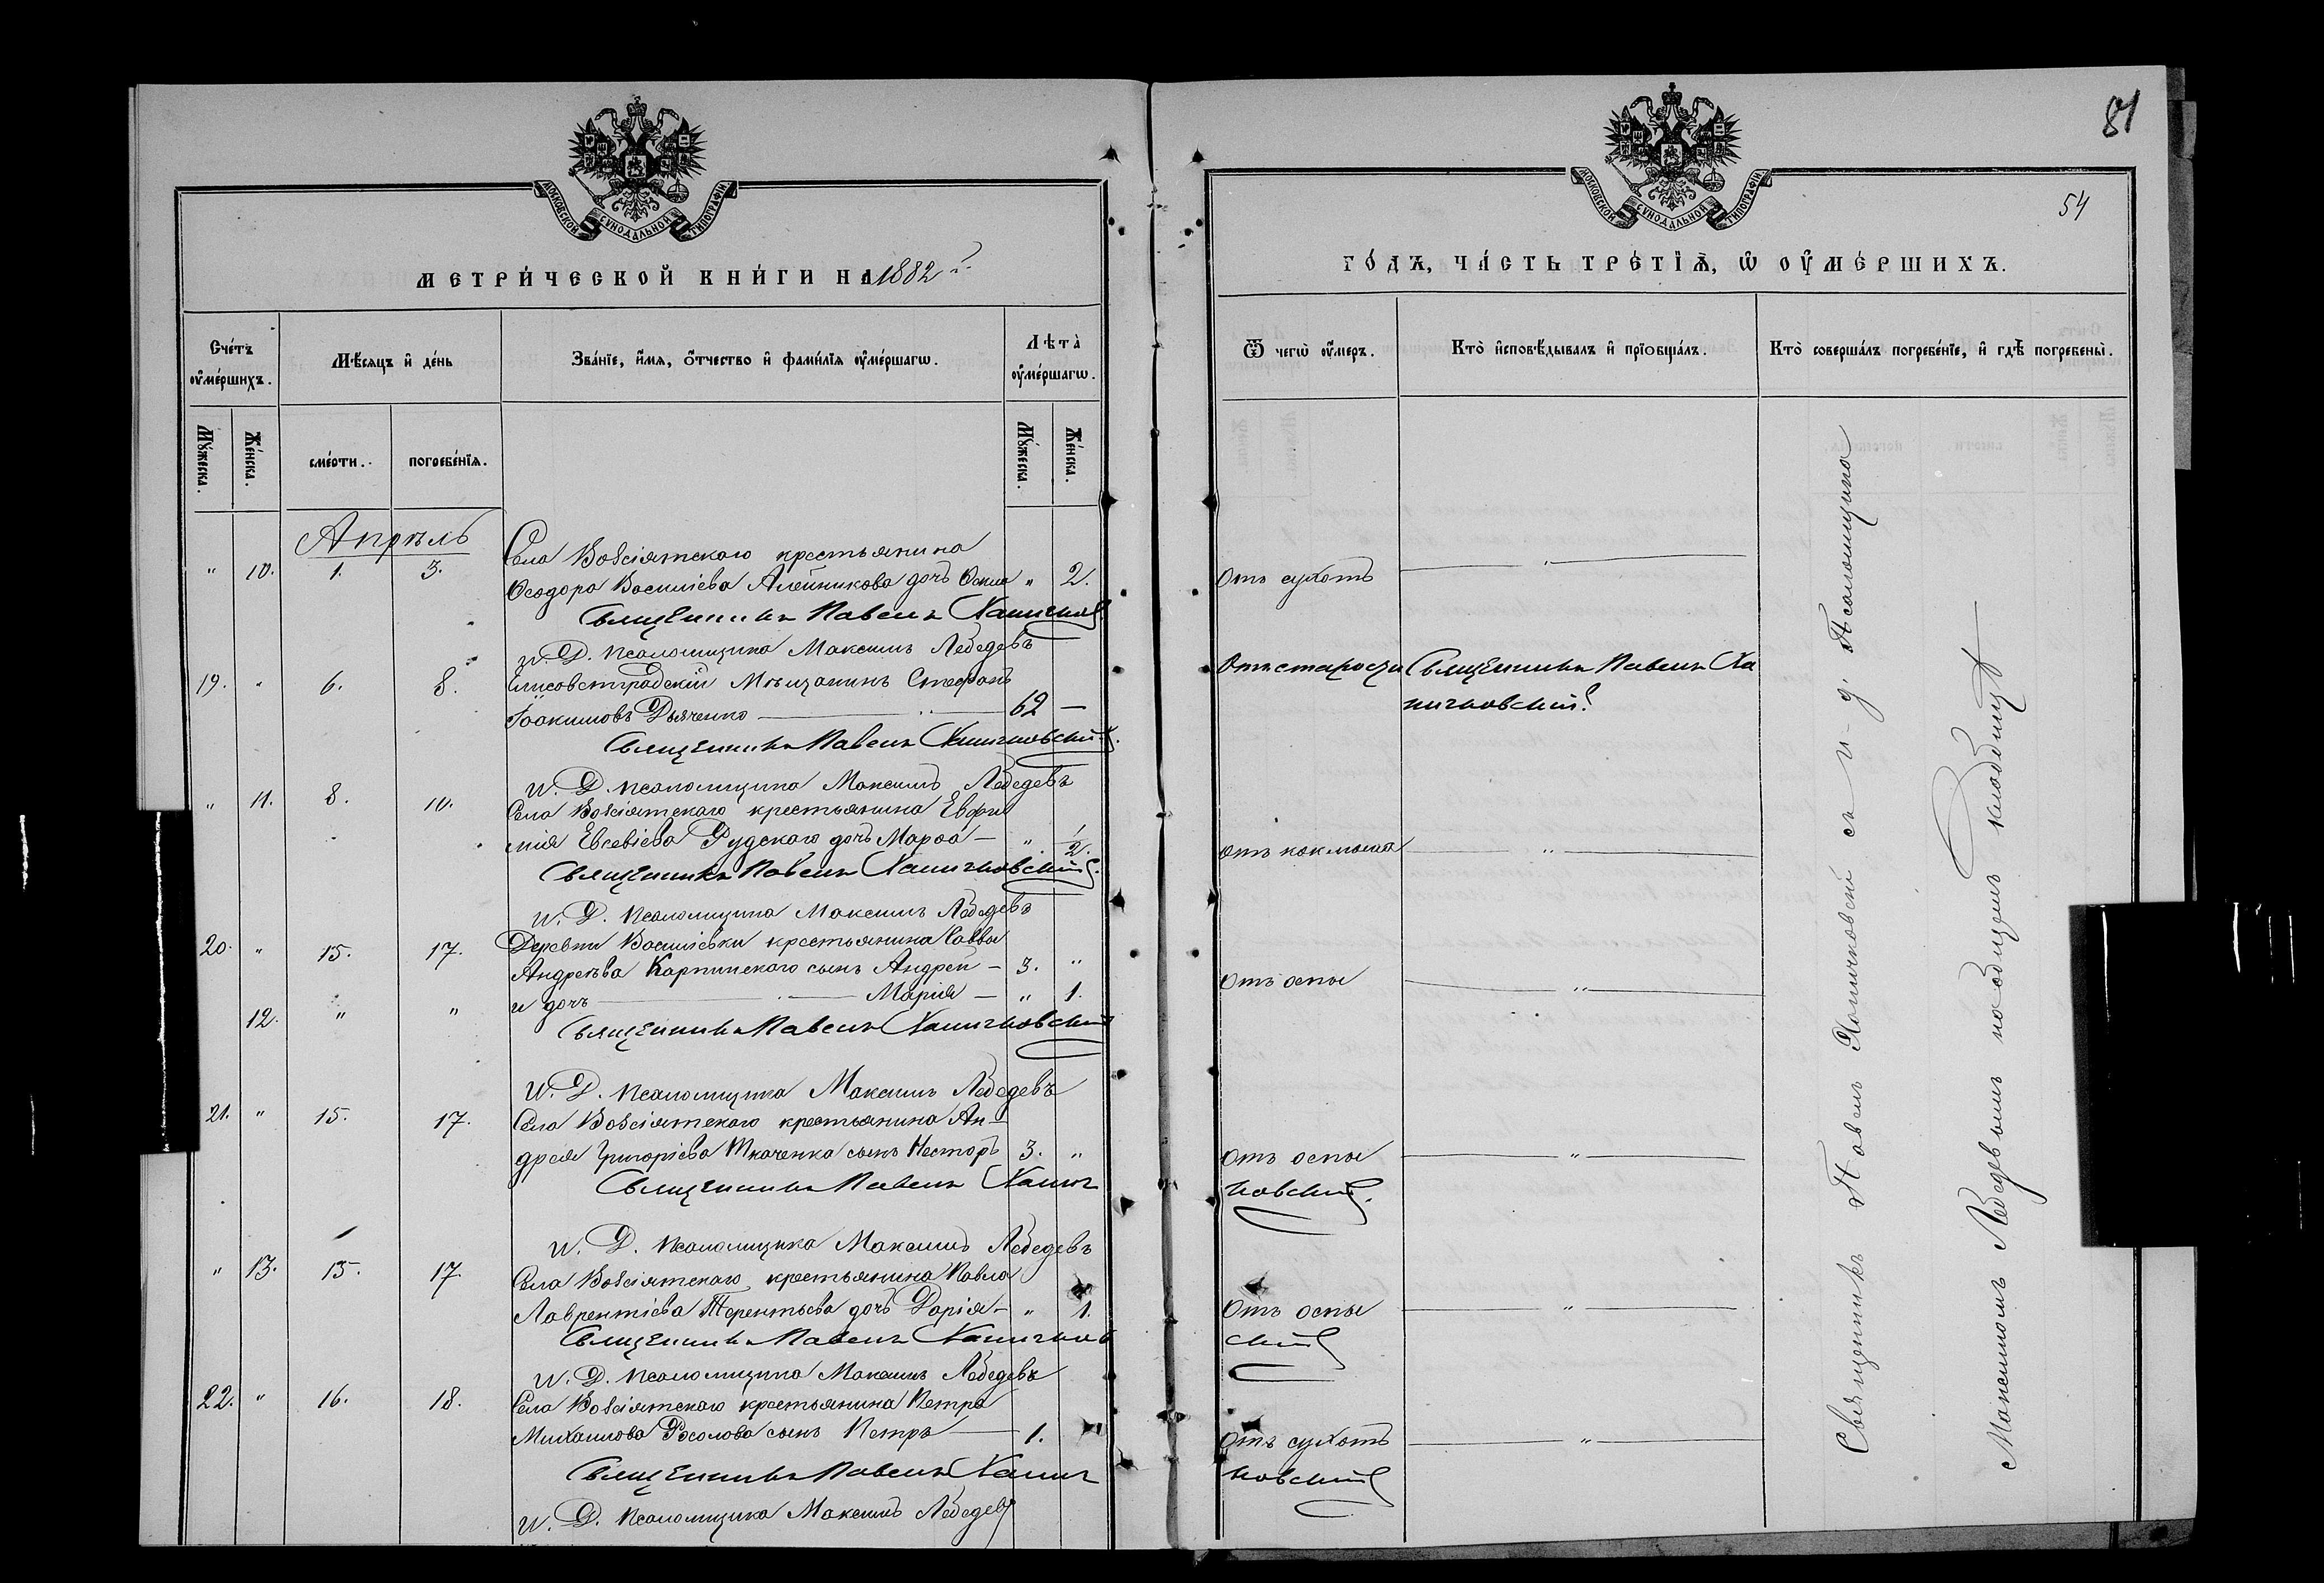 МОСКОВСКОЙ СѴНОДАЛЬНОЙ ТИПОГРАФІИ
МЕТРИ́ЧЕСКОЙ КНИ́ГИ НА 1882
Сче́тъ оу҆ме́ршихъ.
Мѣ́сяцъ и҆ де́нь
Зва́нїе, и҆́мя, ѻ҆́тчество и҆ фами́лїя оу҆ме́ршагѡ.
Лѣта̀ оу҆ме́ршагѡ.
Мꙋ́жеска.
Же́нска.
сме́рти.
погребе́нїя.
Мꙋ́жеска.
Же́нска.
Апрѣль
" 10. 1. 3. Села Возсіятскаго крестьянина
Ѳеодора Василіева Алейникова дочь " 2.
Священникъ Павелъ Ханичков
и. Д. псаломщика Максимъ Лебедевъ
19. " 6. 8. Елисаветградскій Мѣщанинъ Стефанъ
Іоакимовъ Дьяченко — 62 —
Священникъ Павелъ Ханичковскій.
и. Д. псаломщика Максимъ Лебедевъ
" 11. 8. 10. Села Возсіятскаго крестьянина Евфи
мія Евсевіева Рудскаго дочь Марѳа — " 1/2.
Священникъ Павелъ Ханичковскій.
и. Д. псаломщика Максимъ Лебедевъ
20. " 15. 17. Деревни Василіевки крестьянина Саввы
Андреева Карпинскаго сынъ Андрей — 3. "
12. " " и дочь — Марія — " 1.
Священникъ Павелъ Ханичковскій
и. Д. псаломщика Максимъ Лебедевъ
21. " 15. 17. Села Возсіятскаго крестьянина Ан-
дрея Григоріева Ткаченка сынъ Несторъ 3. "
Священникъ Павелъ Ханич
и. Д. псаломщика Максимъ Лебедевъ
" 13. 15. 17. Села Возсіятскаго крестьянина Павла
Лаврентіева Терентьева дочь Дарія — " 1.
Священникъ Павелъ Ханичков
и. Д. псаломщика Максимъ Лебедевъ
22. " 16. 18. Села Возсіятскаго крестьянина Петра
Михаилова Росолова сынъ Петръ — 1. "
Священникъ Павелъ Ханич
и. Д. псаломщика Максимъ Лебедев
81
54
МОСКОВСКОЙ СѴНОДАЛЬНОЙ ТИПОГРАФІИ
ГО́ДЪ, ЧА́СТЬ ТРЕ́ТЇѦ, Ѡ҆ ОУ҆МЕ́РШИХЪ.
Ѿ чегѡ̀ оу҆́меръ.
Кто̀ и҆сповѣ́дывалъ и҆ прїѡбща́лъ.
Кто̀ соверша́лъ погребе́нїе, и҆ гдѣ̀ погребены̀.
Отъ сухотъ — " —
Отъ старости Священникъ Павелъ Ха
ничковскій
Отъ коклюша — " —
Отъ оспы — " —
Отъ оспы — " —
ковскій.
Отъ оспы — " —
скій
Отъ сухотъ — " —
ковскій
Священникъ Павелъ Ханичковскій съ и. д. Псаломщика
Максимомъ Лебедевымъ на общемъ кладбищѣ